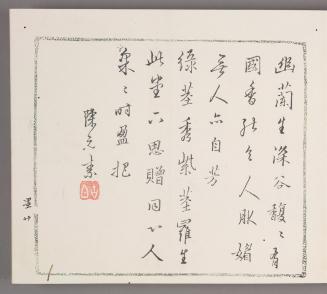 幽蘭生深谷馥〻有
國香能令人服媚
無人亦自芳
綠葉秀紫莖羅生
此堂下思贈同心人
采〻時盈把
陳元素